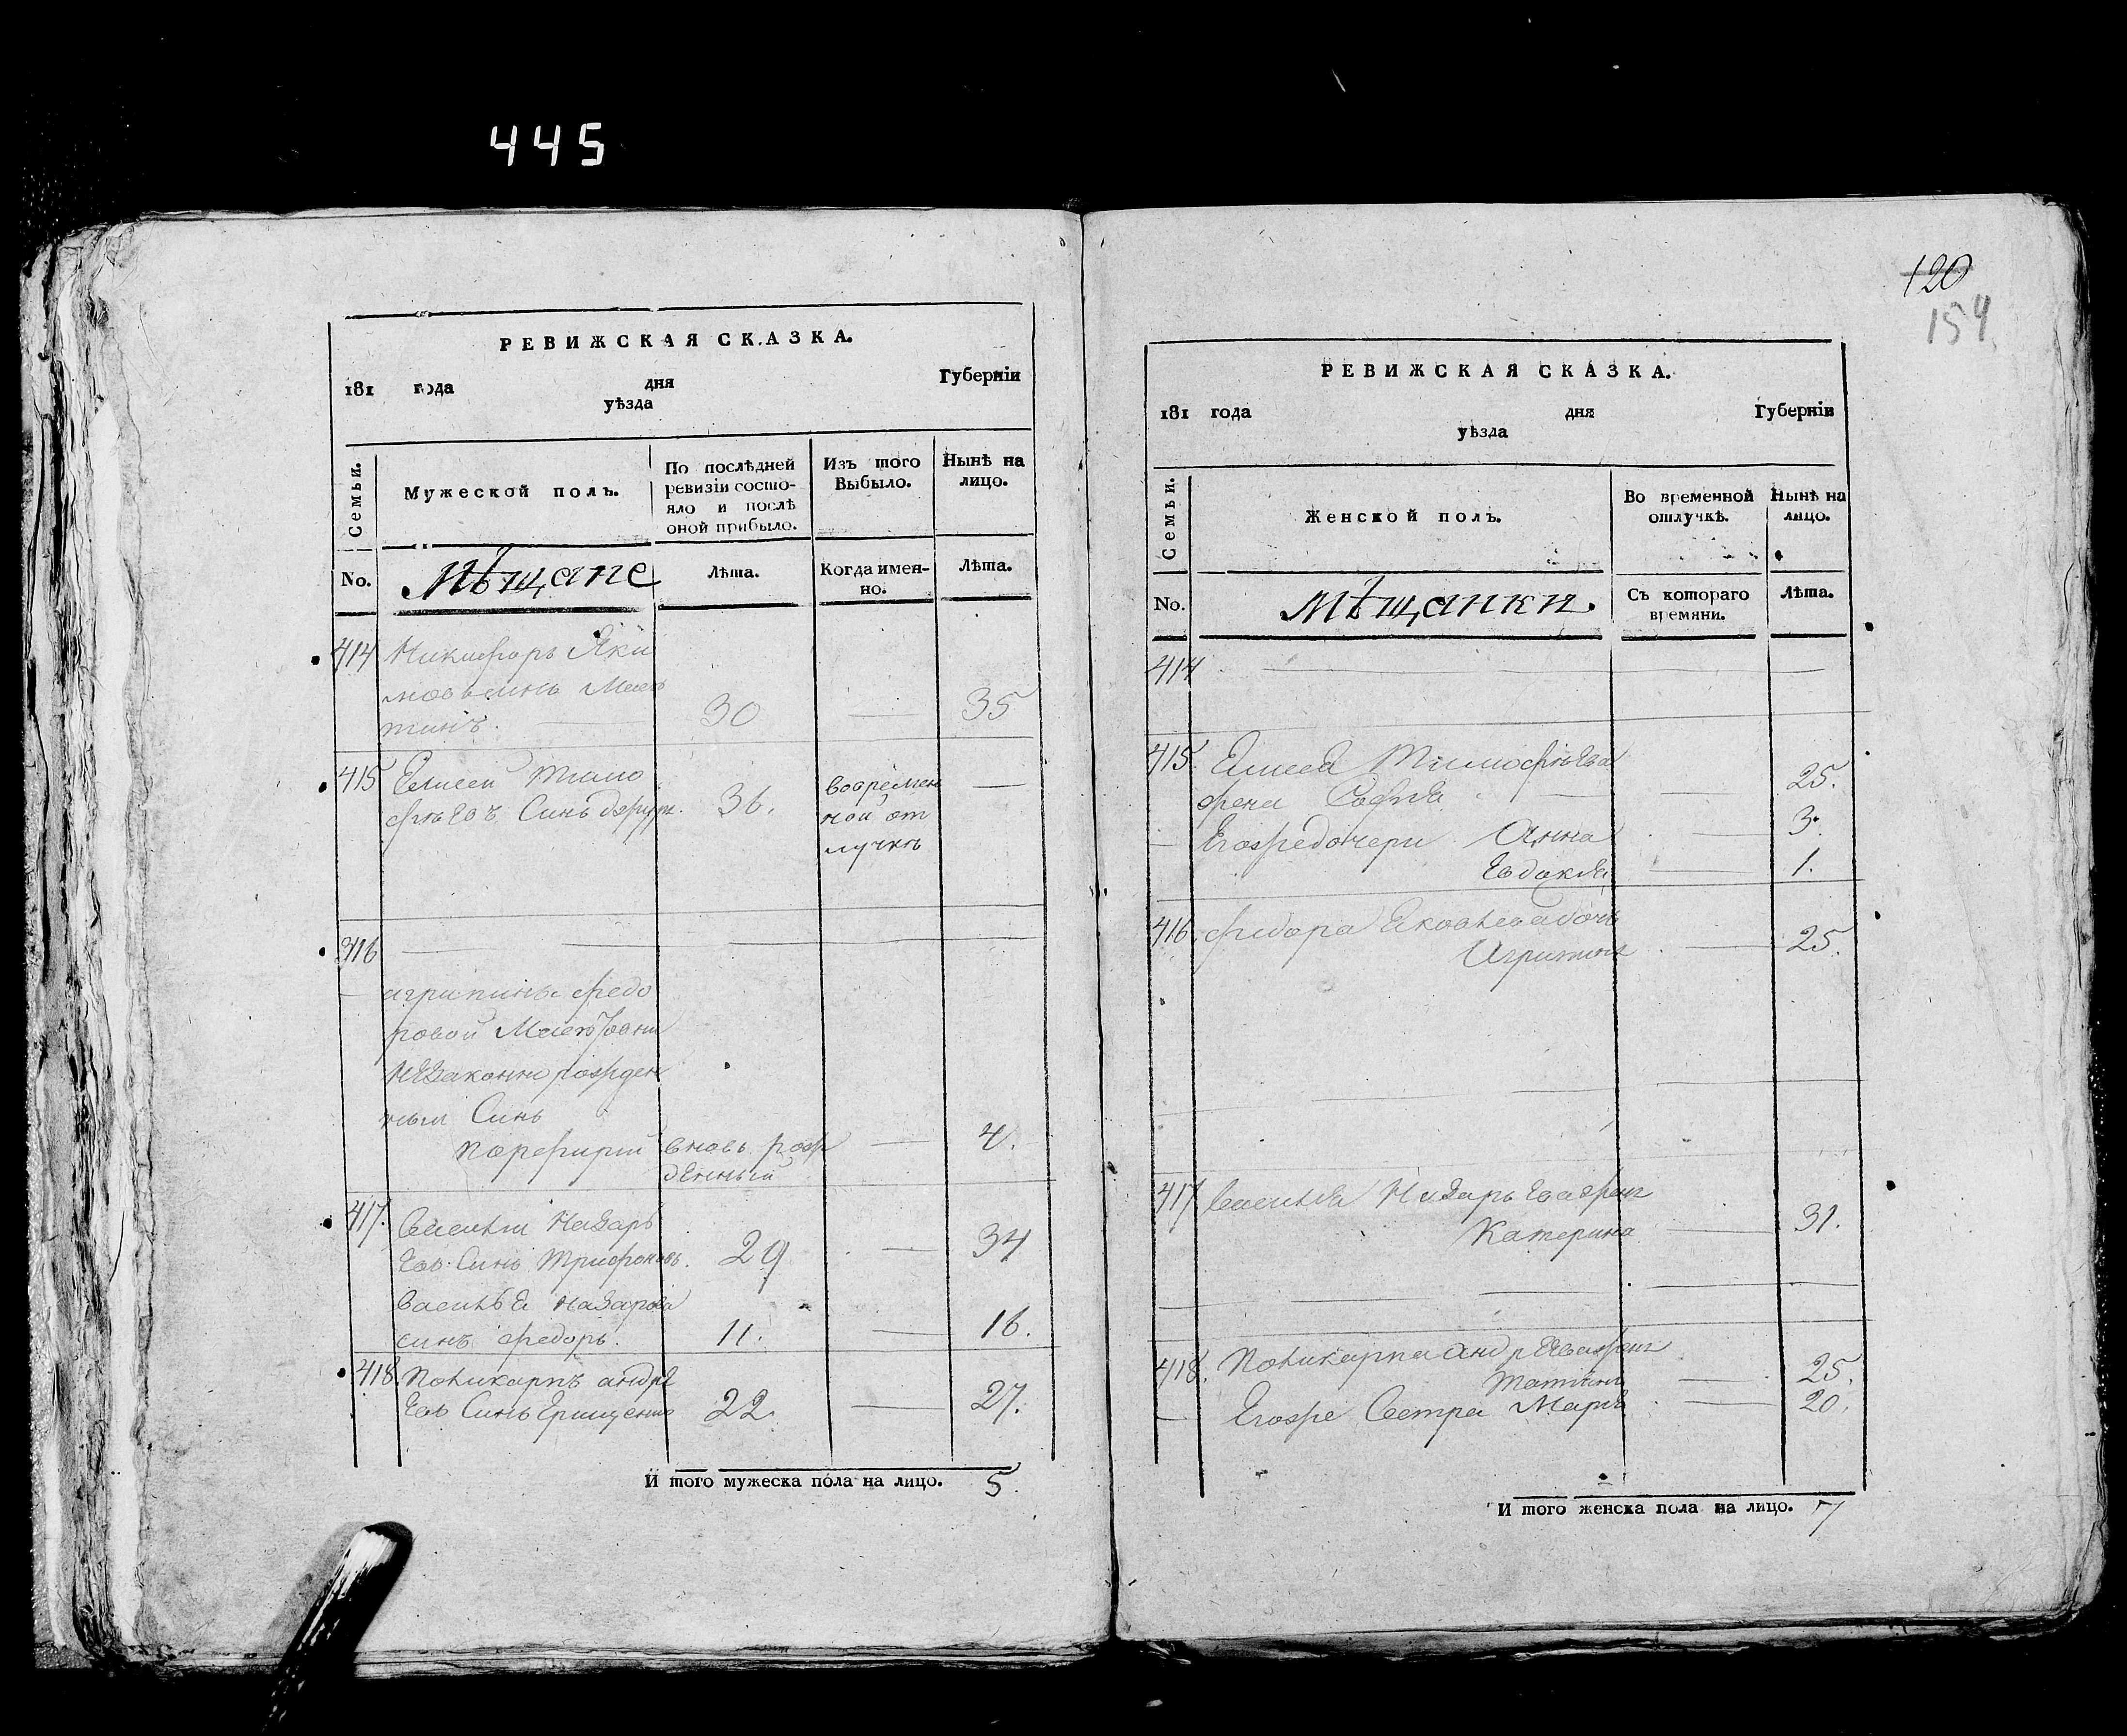 445
РЕВИЖСКАЯ СКАЗКА.
181 года дня Губерніи
уѣзда
Семьи.
Мужеской полъ.
По послѣдней ревизіи состояло и послѣ оной прибыло.
Изъ того Выбыло.
Нынѣ на лицо.
No.
Мѣщане
Лѣта.
Когда именно.
Лѣта.
414 Никифоръ Яки
мовъ синъ
30 — 35
415 Елисей Тимо
фѣевъ Синъ 36. вовремен —
ной от
лучкѣ
416 —
агрипины федо
ровой
незаконно рожден
ный Синъ
порфирий вновь рож — 4.
денный
417. Василий Назарь
евъ Синъ Трифоновъ. 29 — 34
Василья Назарова
синъ федоръ. 11. — 16.
418. Поликарпъ андре
евъ Синъ Ерищенко 22 — 27.
И того мужеска пола на лицо. 5.
120
154
РЕВИЖСКАЯ СКАЗКА.
181 года дня Губерніи
уѣзда
Семьи.
Женской полъ.
Во временной отлучкѣ.
Нынѣ на лицо.
No.
Мѣщанки.
Съ котораго времяни.
Лѣта.
414 —
415. Елисея Тимофѣева
жена Софія — 25.
Егоже дочери Анна — 3.
Евдокія — 1.
416. федора Яковлева дочь
Агрипина — 25.
417 Василья Назарьева жена
Катерина — 31.
418. Поликарпа андреева жена
Татіяна — 25.
— Егоже Сестра Марія — 20.
И того женска пола на лицо. 7